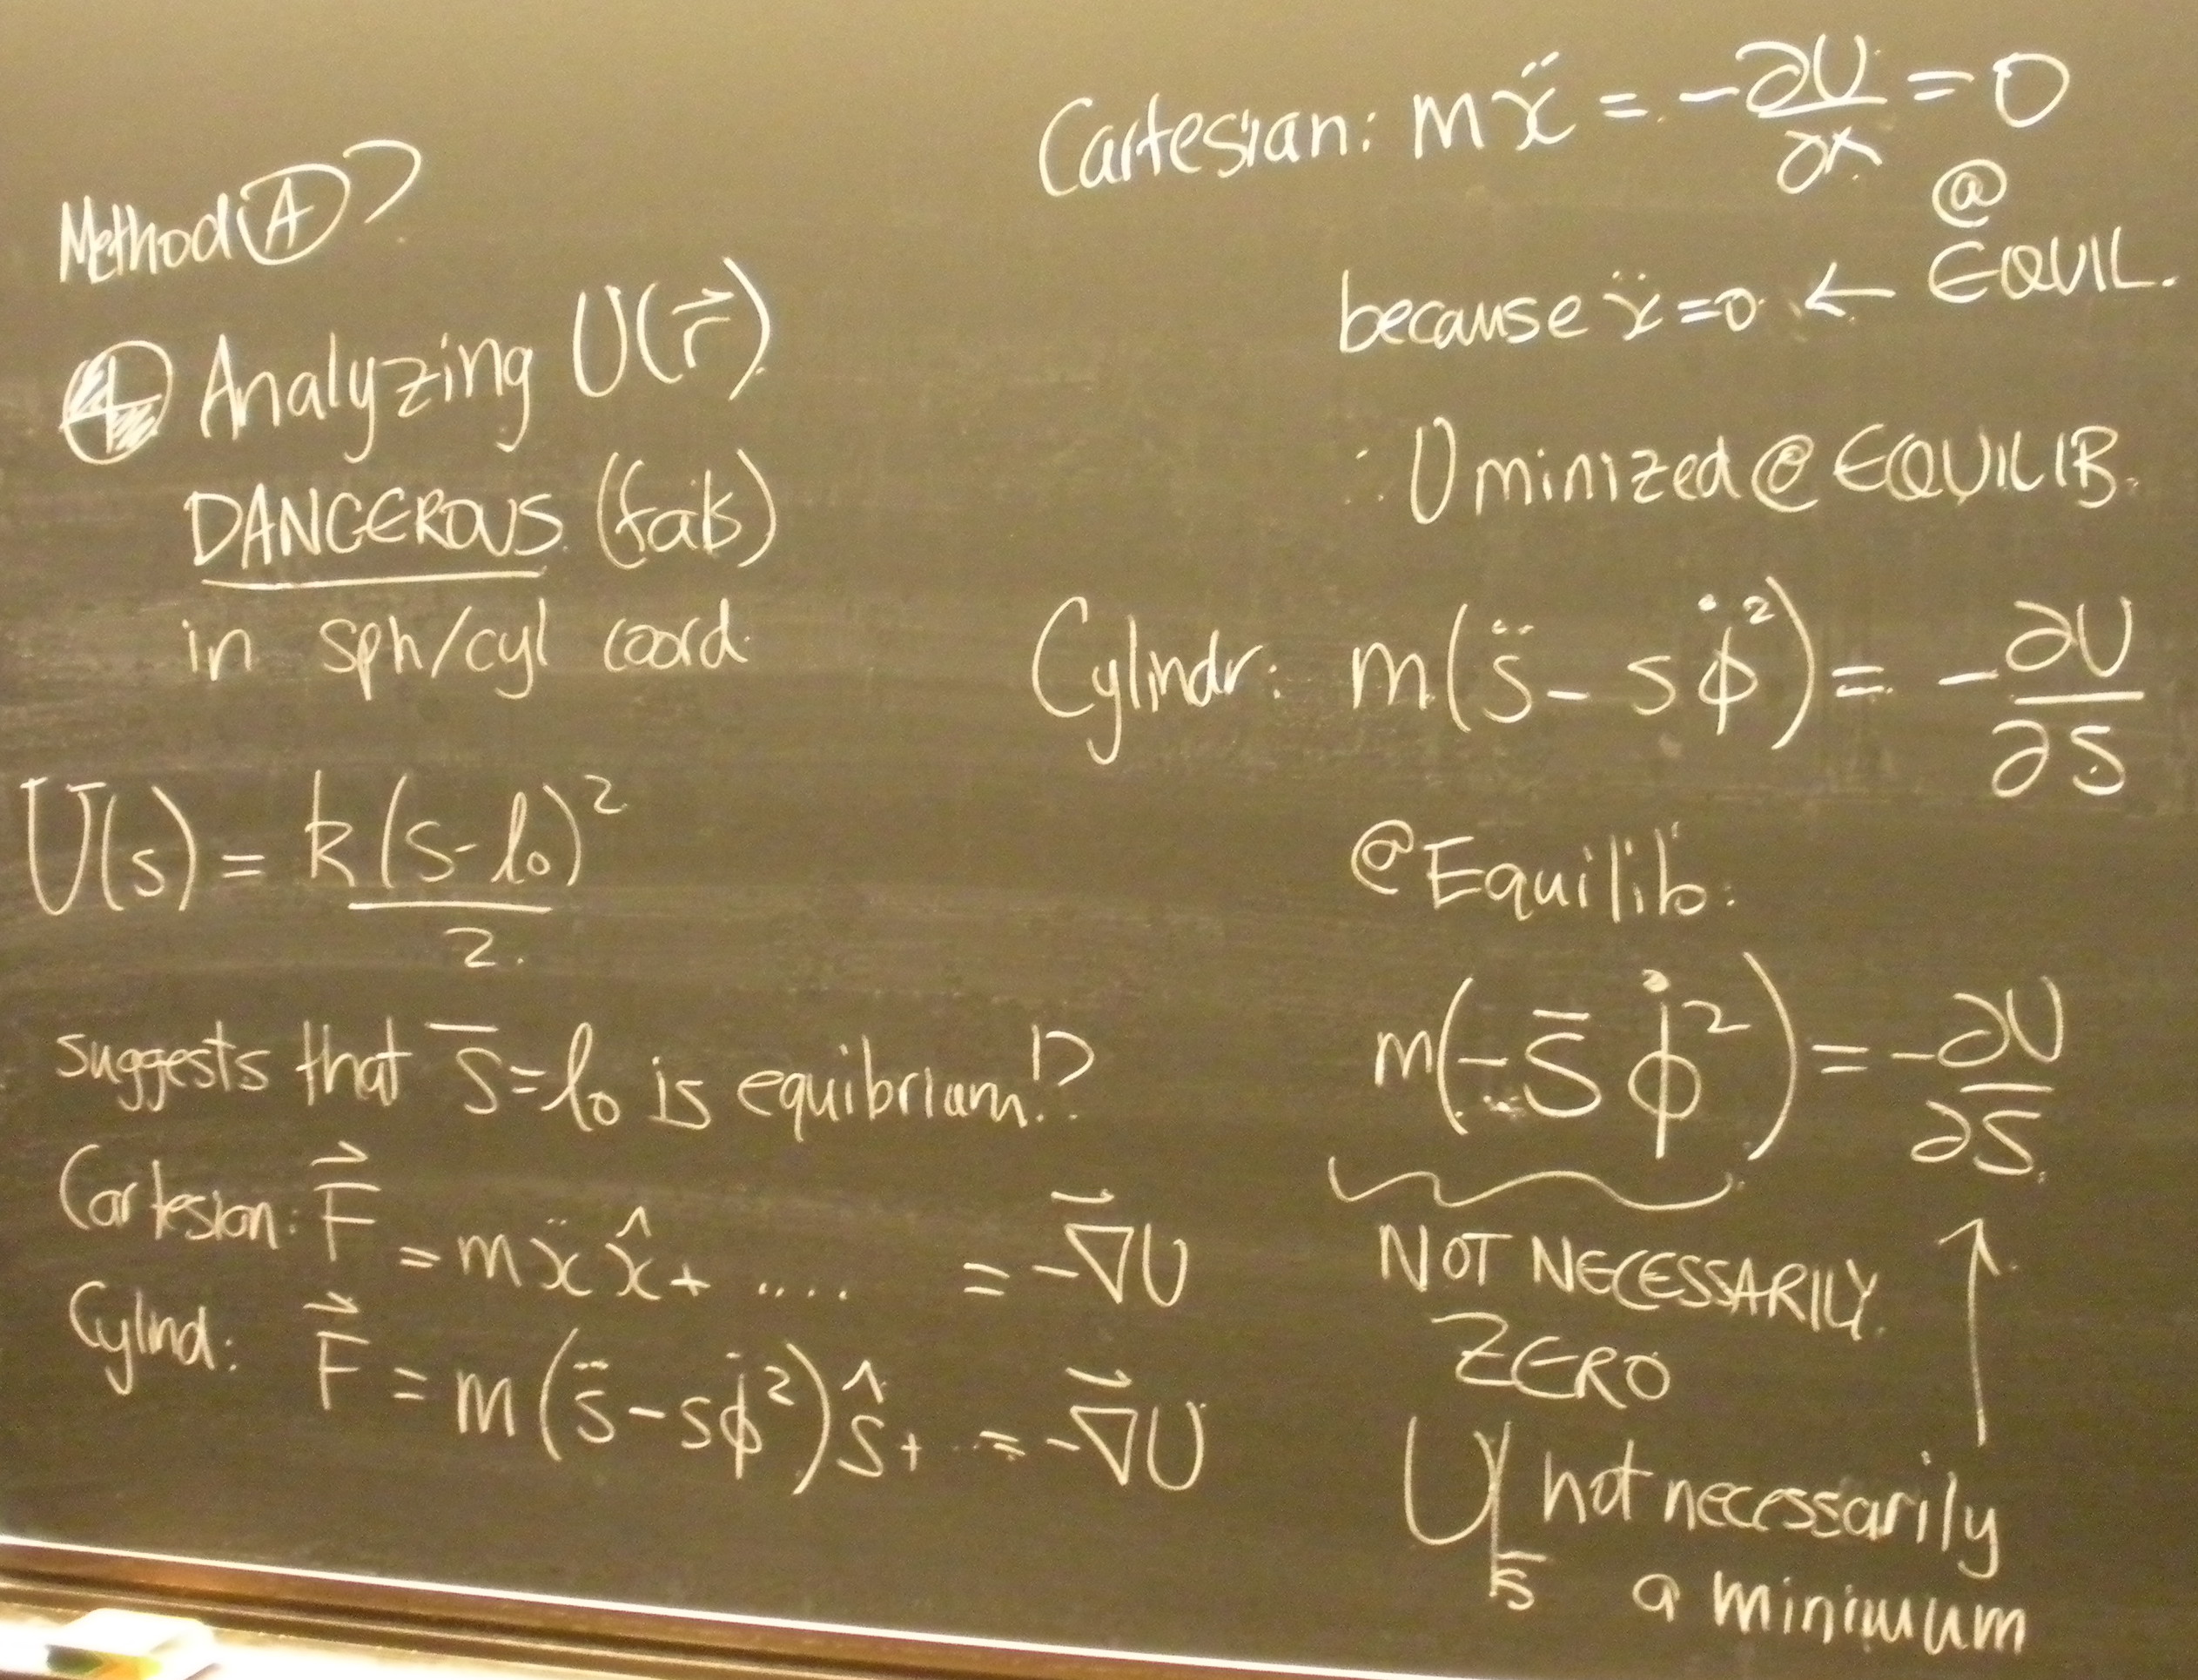 Method Ⓐ?
⊕ Analyzing U(r⃗)
DANGEROUS (fails)
in sph/cyl coord.
U(s) = k(s-l₀)²/2.
suggests that s̄=l₀ is equibrium!?
Cartesian: F⃗ = mẍx̂+ .... = -∇⃗U
Cylind: F⃗ = m(s̈-sφ̇²)ŝ+ .. = -∇⃗U
Cartesian: mẍ = -∂U/∂x = 0
@
EQUIL.
because ẍ=0 ←
∴ U minized @ EQUILIB.
Cylindr: m(s̈ - sφ̇²) = -∂U/∂s
@Equilib:
m(-s̄φ̇²) = -∂U/∂s
NOT NECESSARILY
ZERO
↑
U|s̄ not necessarily
a minimum